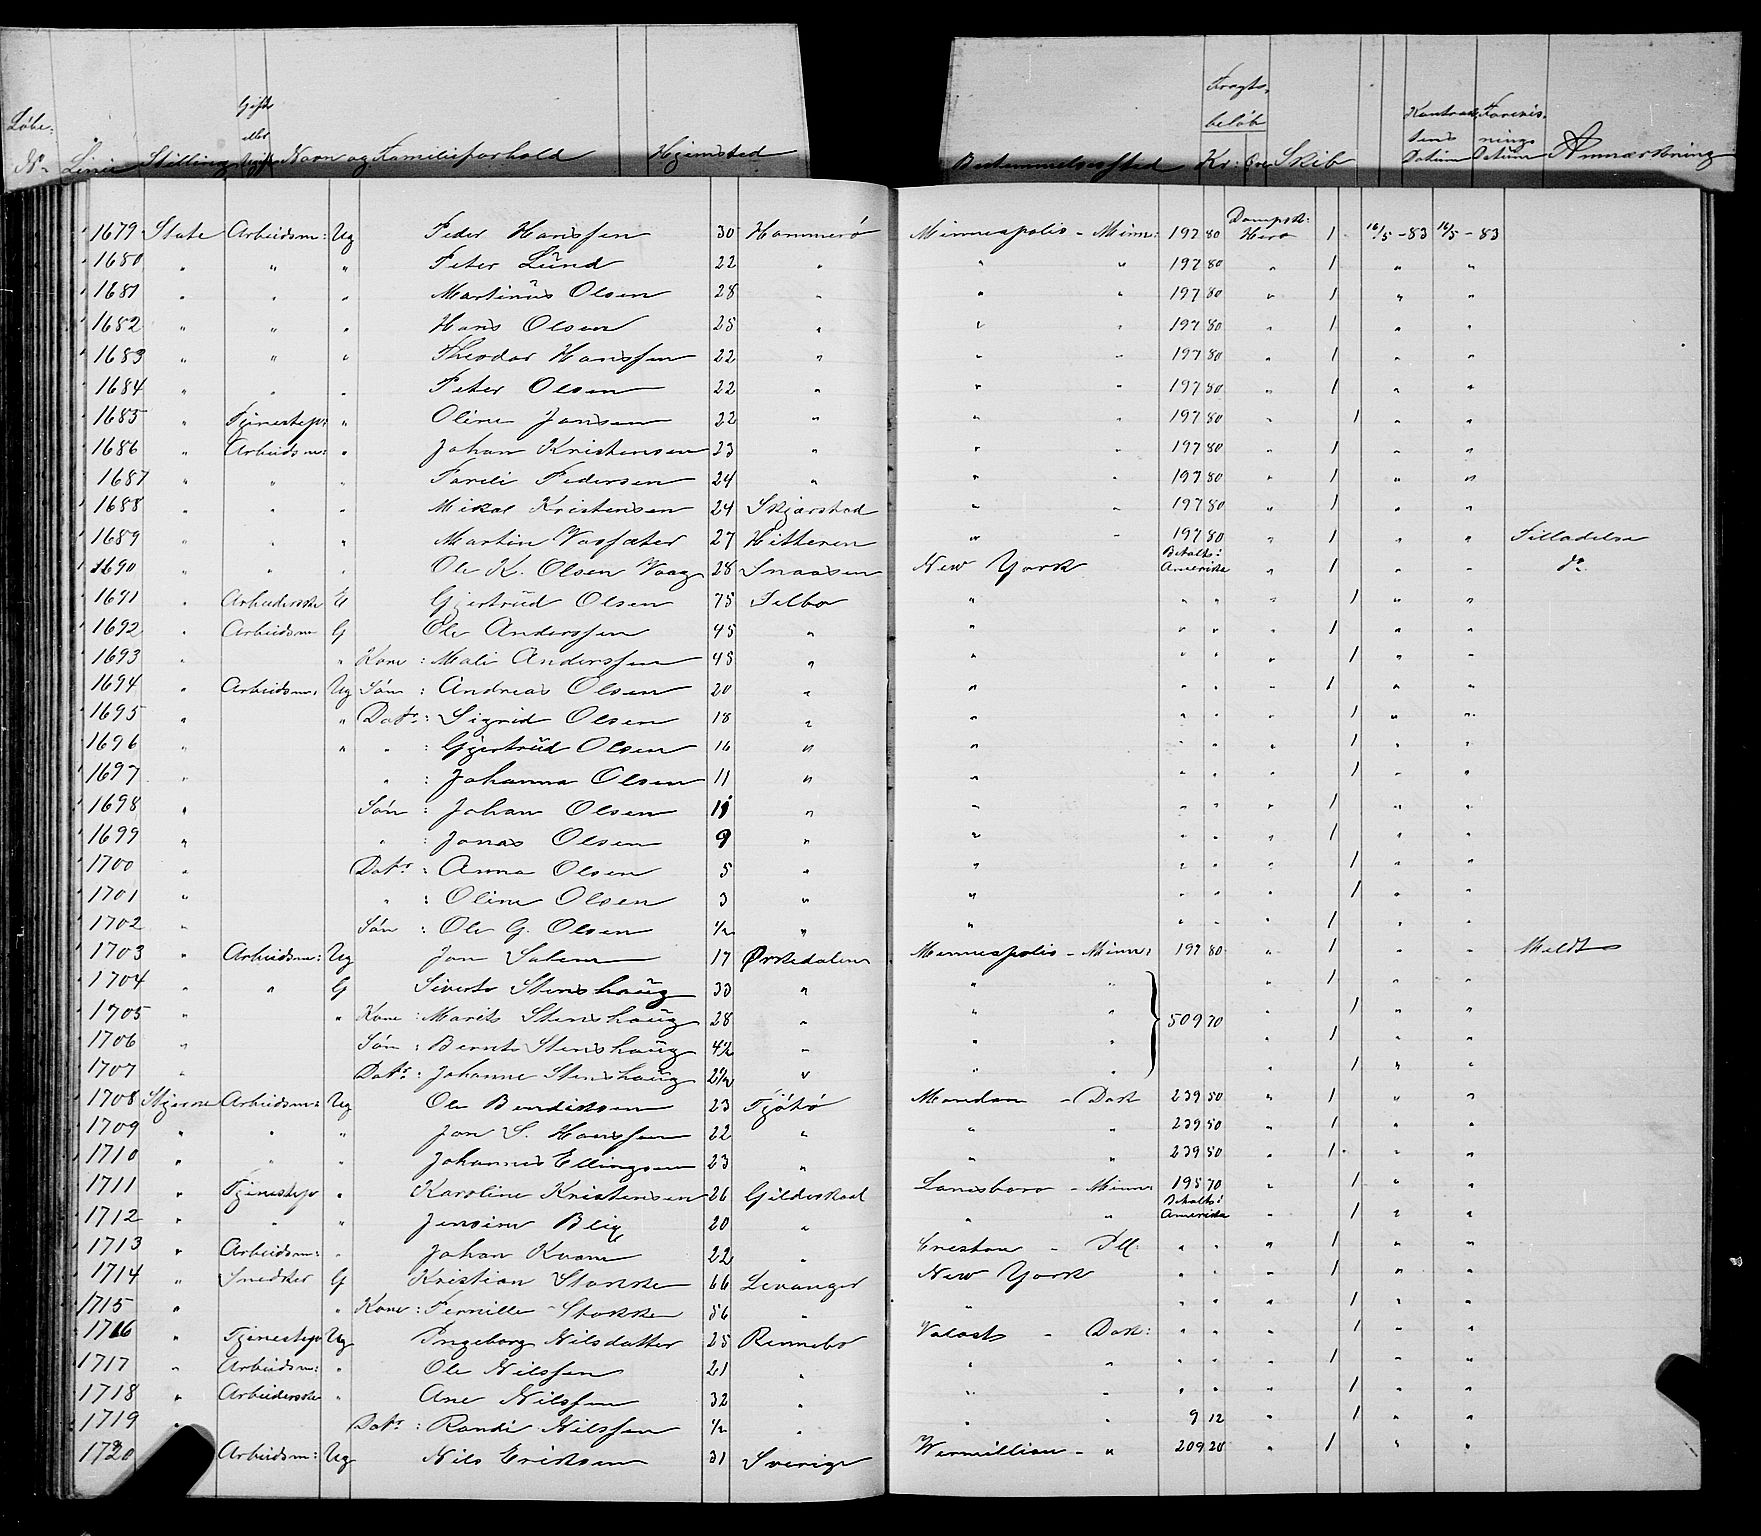 Løbe: No. Linie Stilling Gift eller Ugift Navn og Familieforhold Hjemsted Bestemmelsessted Fragtbeløb Kr: Øre Skib Datum Datum Anmærkning
1679 State Arbeidsm: Ug Peder Hanssen 30 Hammerø Minneapolis - Minn: 197 80 Dampsk: Hero 1 16/5 - 83 16/5 - 83
1680 " " " Peter Lund 22 " " " 197 80 " 1 " "
1681 " " " Martinus Olsen 28 " " " 197 80 " 1 " "
1682 " " " Hans Olsen 25 " " " 197 80 " 1 " "
1683 " " " Theodor Hanssen 22 " " " 197 80 " 1 " "
1684 " " " Peter Olsen 22 " " " 197 80 " 1 " "
1685 " Tjenestep: " Oline Jansen 22 " " " 197 80 " 1 " "
1686 " Arbeidsm: " Johan Kristensen 23 " " " 197 80 " 1 " "
1687 " " " Pareli Pedersen 24 " " " 197 80 " 1 " "
1688 " " " Mikal Kristensen 24 Skjærstad " " 197 80 " 1 " "
1689 " " " Martin 27 Hitteren " " 197 80 " 1 " " Tilladelse
1690 " " " Ole K. Olsen Vaag 28 Snaasen New York Betalt i Amerika " 1 " " do
1691 " Arbeiderske E Gjertrud Olsen 75 Selbo " " " " 1 " "
1692 " Arbeidsm G Ole Anderssen 45 " " " " " 1 " "
1693 " " Kone : Mali Anderssen 45 " " " " " 1 " "
1694 " Arbeidsm: Ug Søn : Andreas Olsen 20 " " " " " 1 " "
1695 " " Datr : Sigrid Olsen 18 " " " " " 1 " "
1696 " " " : Gjertrud Olsen 16 " " " " " 1 " "
1697 " " : Johanna Olsen 11 " " " " " 1 " "
1698 " Søn : Johan Olsen 11 " " " " " 1 " "
1699 " " : Jonas Olsen 9 " " " " " 1 " "
1700 " Datr : Anna Olsen 5 " " " " " 1 " "
1701 " " : Oline Olsen 3 " " " " " 1 " "
1702 " Søn : Ole G. Olsen 1/2 " " " " " 1 " "
1703 " Arbeidsm: Ug Jon Solem 17 Ørkedalen Minneapolis - Minn: 197 80 " 1 " " Meldt
1704 " " G Sivert Stenshaug 33 " " " " 1 " "
1705 " " Kone : Marit Stenshaug 28 " " " 509 70 " 1 " "
1706 " Søn : Bernt Stenshaug 4 1/2 " " " " 1 " "
1707 " Datr : Johanne Stenshaug 2 1/2 " " " " 1 " "
1708 Stjerne Arbeidsm: Ug Ole Bendiksen 23 Tjøtø Mandan - Dak 239 50 " 1 " "
1709 " " " Jon S. Hanssen 22 " " " 239 50 " 1 " "
1710 " " " Johannes Ellingsen 23 " " " 239 50 " 1 " "
1711 " Tjenestep " Karoline Kristensen 26 Gildeskaal Lanesboro - Minn: 195 70 " 1 " "
1712 " " " Jensine Blix 20 " " " Betalt i Amerika " 1 " "
1713 " Arbeidsm: " Johan Kvam 22 " Creston - Ill. " " " 1 " "
1714 " Snedker G Kristian Stokke 66 Levanger New York " " " 1 " "
1715 " " Kone : Pernille Stokke 56 " " " " " 1 " "
1716 " Tjenestep Ug Ingeborg Nilsdatter 25 Rennebo - Dak: " " " 1 " "
1717 " Arbeidsm: " Ole Nilssen 21 " " " " " " 1 " "
1718 " Arbeiderske " Ane Nilssen 32 " " " " " " 1 " "
1719 " Datr : Randi Nilssen 1/2 " " " 9 12 " 1 " "
1720 Arbeidsm: Ug Nils Eriksen 31 Sverige Wermillion - " 209 20 " 1 " "